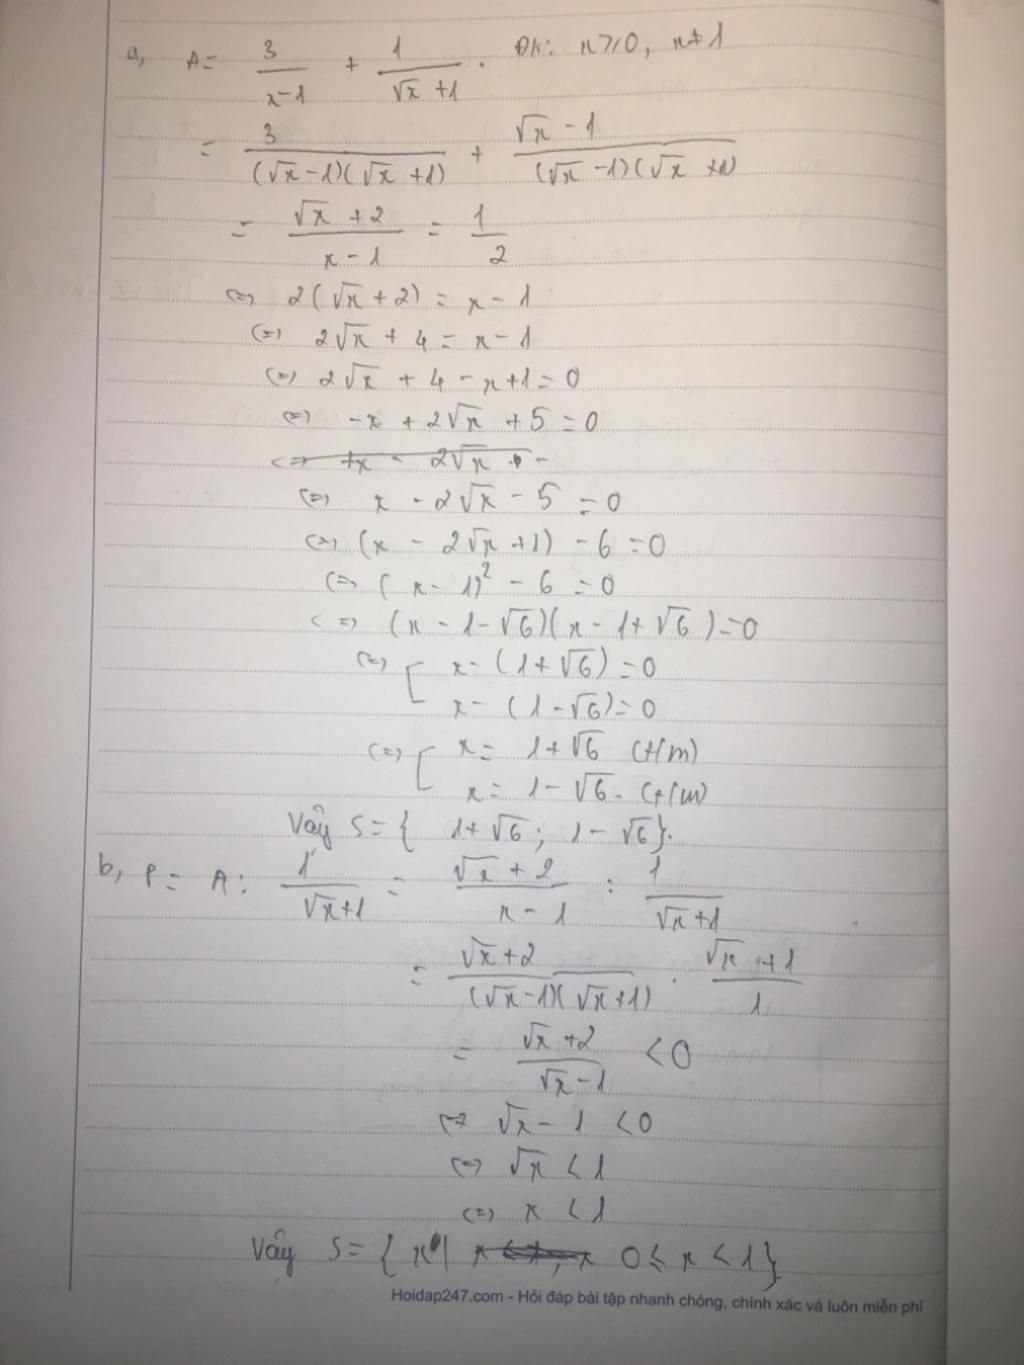 a, A = 3/(x-1) + 1/(√x +1) . ĐK: x ≥ 0, x ≠ 1
= 3/((√x -1)(√x +1)) + (√x - 1)/((√x -1)(√x +1))
= (√x + 2)/(x - 1) = 1/2
(=) 2(√x + 2) = x - 1
(=) 2√x + 4 = x - 1
(=) 2√x + 4 - x + 1 = 0
(=) -x + 2√x + 5 = 0
(=) x - 2√x - 5 = 0
(=) (x - 2√x + 1) - 6 = 0
(=) (x - 1)² - 6 = 0
(=) (x - 1 - √6)(x - 1 + √6) = 0
(=) [ x - (1 + √6) = 0
x - (1 - √6) = 0
(=) [ x = 1 + √6 (t/m)
x = 1 - √6. (t/m)
Vậy S = { 1 + √6; 1 - √6}.
b, P = A : 1/(√x+1) = (√x + 2)/(x - 1) : 1/(√x +1)
= (√x+2)/((√x-1)(√x+1)) . (√x +1)/1
= (√x +2)/(√x -1) < 0
(=) √x - 1 < 0
(=) √x < 1
(=) x < 1
Vậy S = { x | 0 ≤ x < 1}
Hoidap247.com - Hỏi đáp bài tập nhanh chóng, chính xác và luôn miễn phí